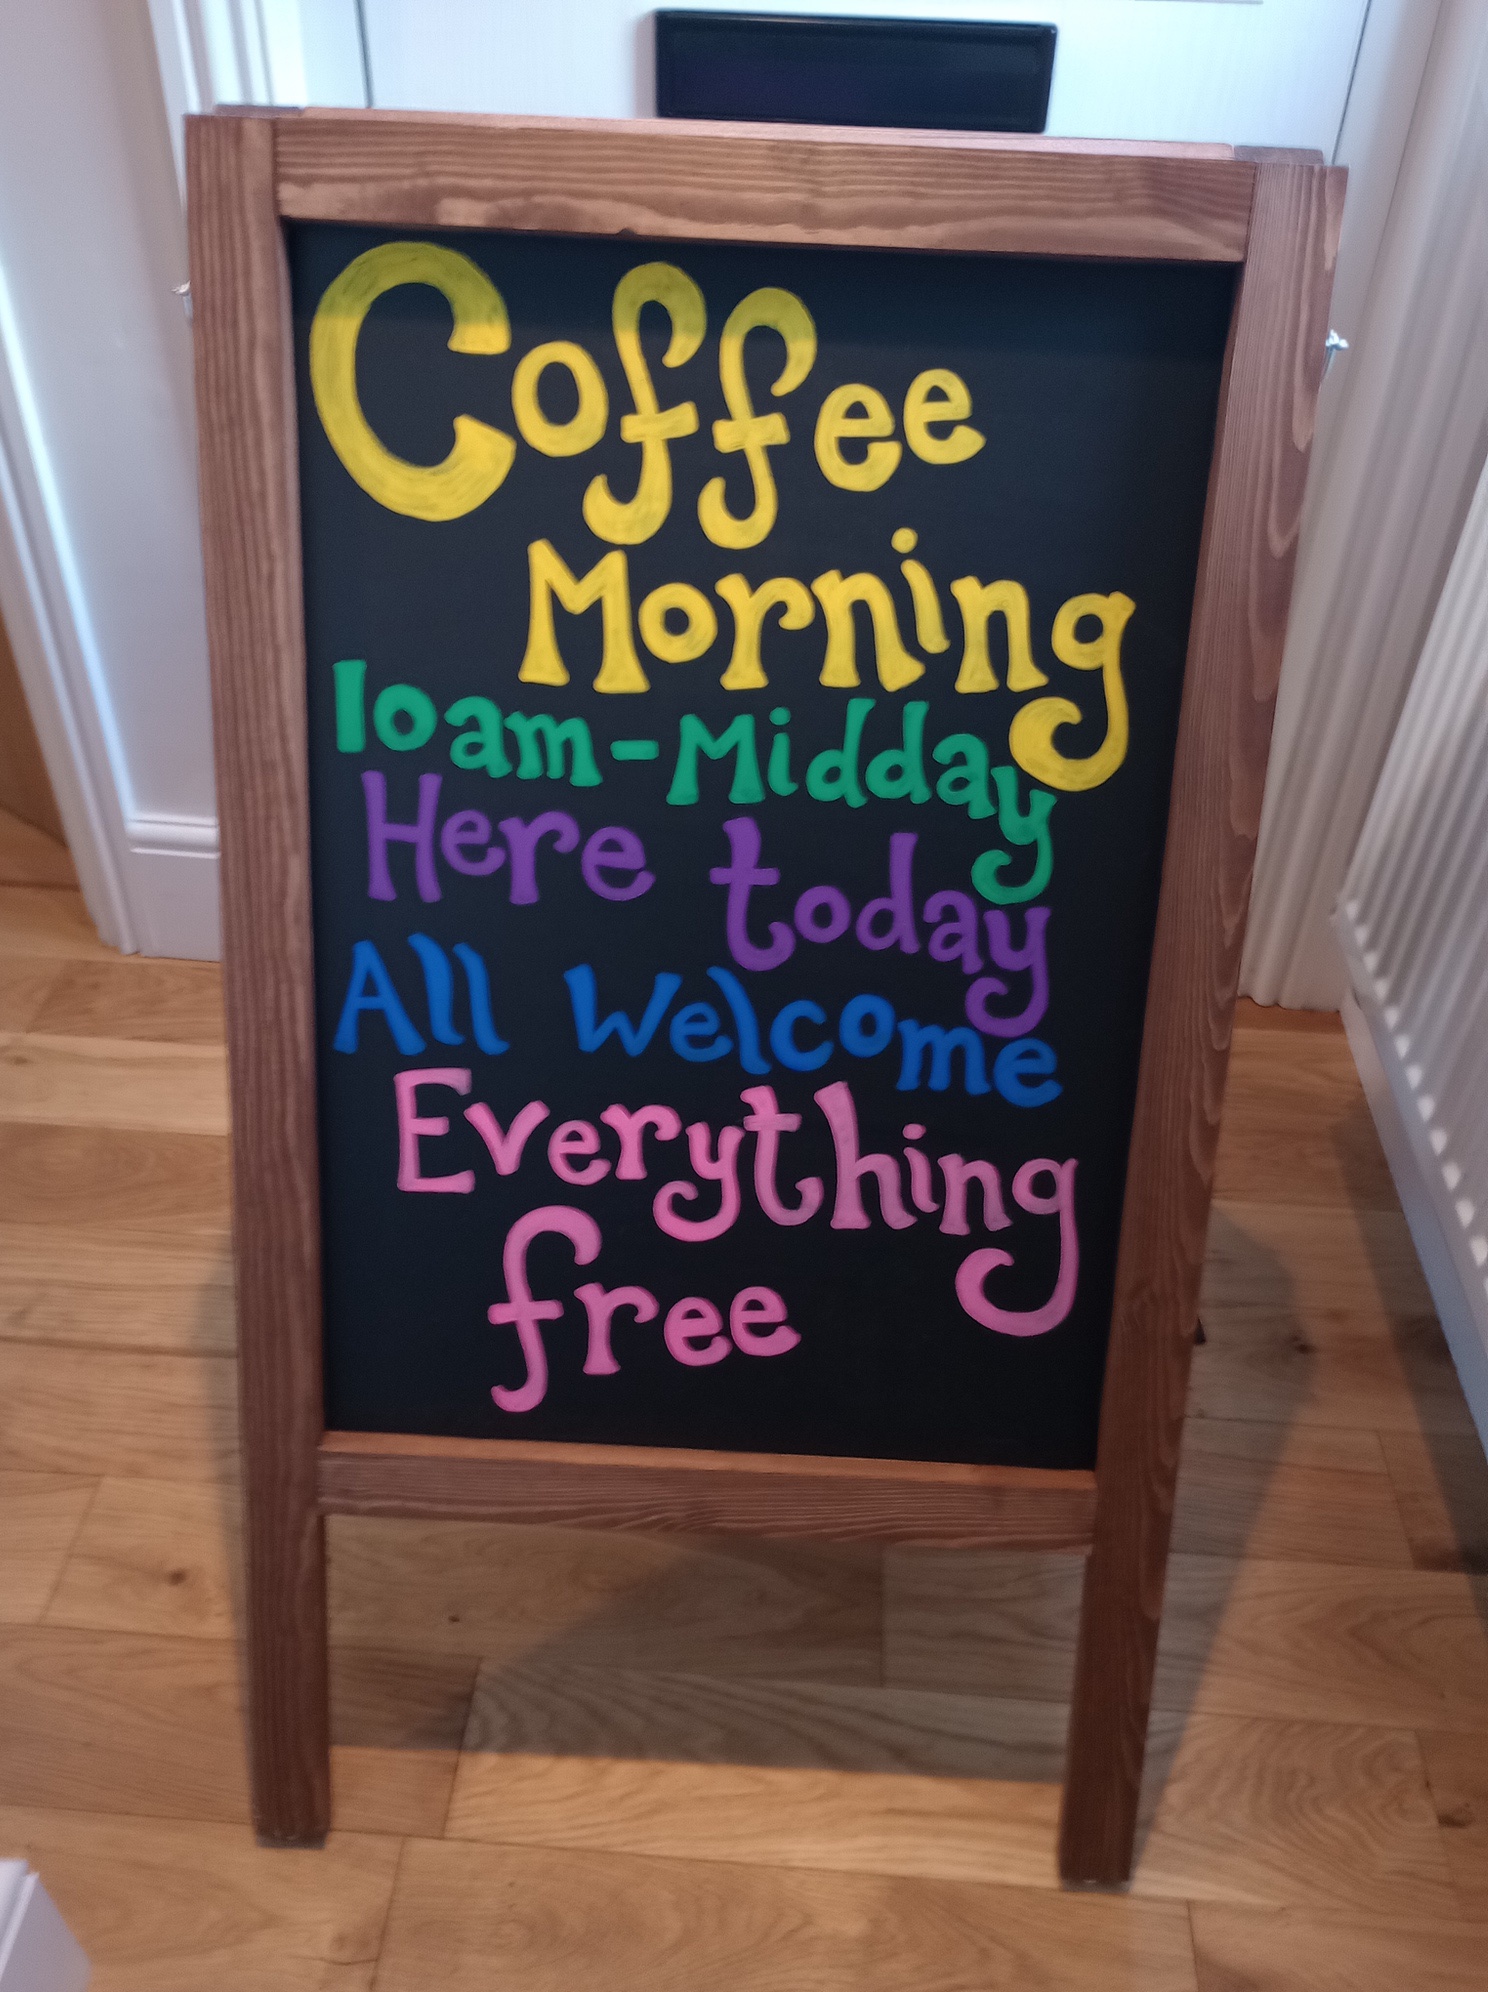 Coffee
Morning
10am-Midday
Here today
All Welcome
Everything
free